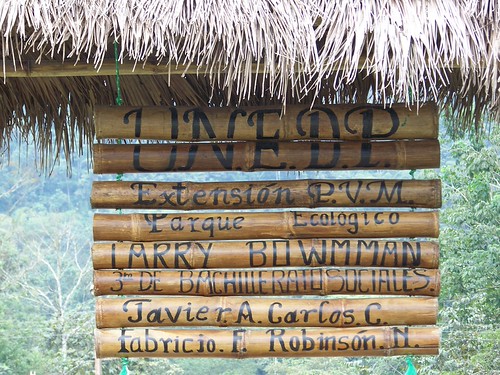 U.N.E.D.P.
Extensión P.V.M.
Parque Ecologico
LARRY BOWMMAN
3ro DE BACHILLERATO SOCIALES.
Javier A. Carlos. C.
Fabricio. F Robinson. N.